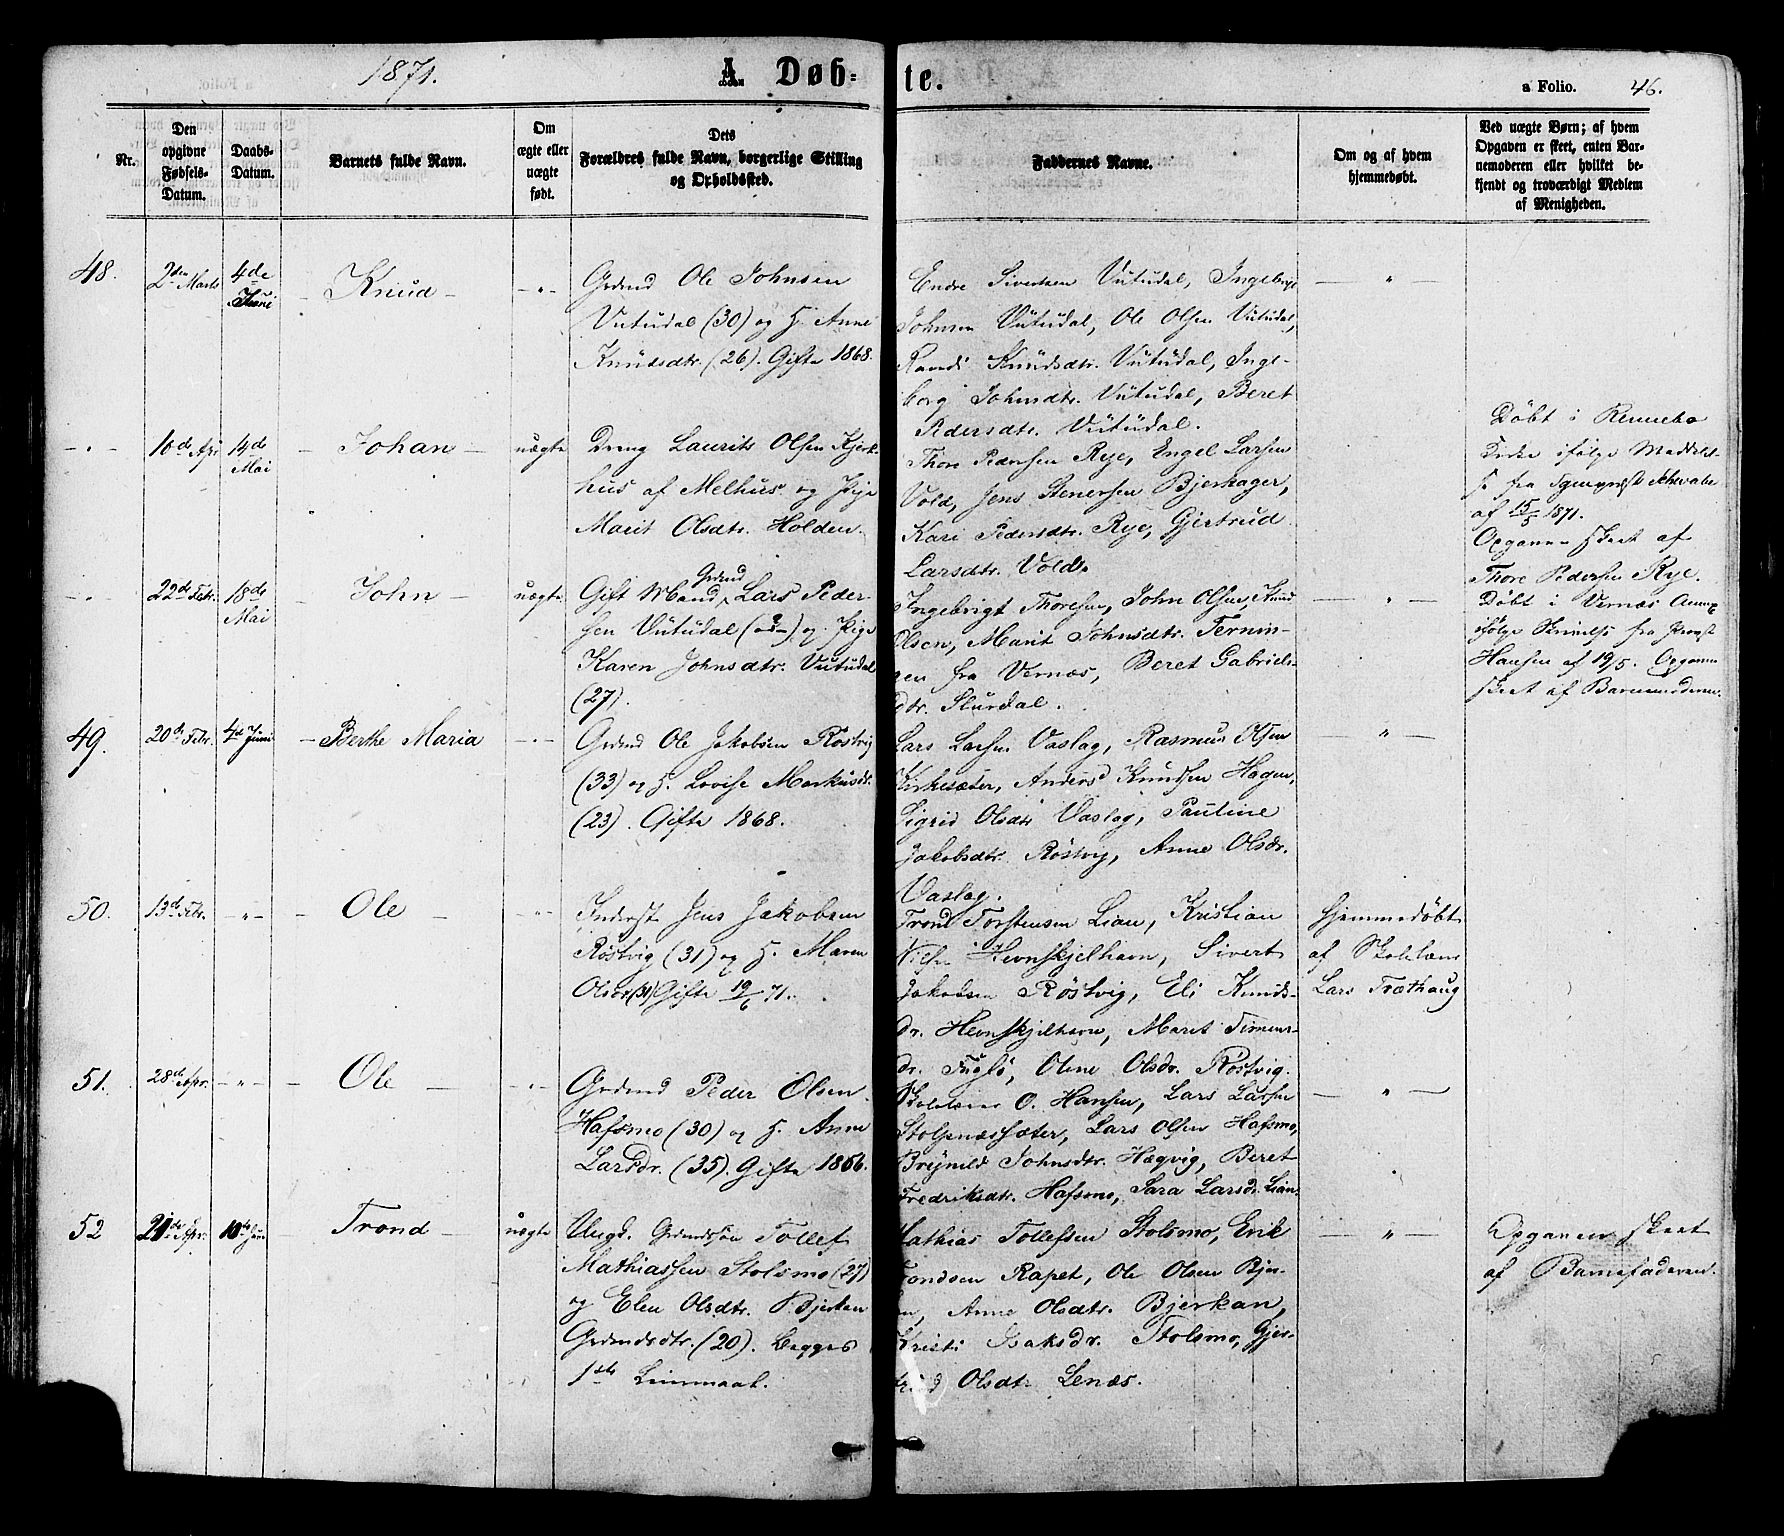 1871.
A Døb-
te.
a Folio. 46.
Nr.
Den
opgivne
Fødsels-
Datum.
Daabs-
Datum.
Barnets fulde Navn.
Om
ægte eller
uægte
født.
Dets
Forældres fulde Navn, borgerlige Stilling
og Opholdssted.
Faddernes Navne.
Om og af hvem
hjemmedøbt.
Ved uægte Børn; af hvem
Opgaven er skeet, enten Bar-
nemoderen eller hvilket be-
kjendt og troværdigt Medlem
af Menigheden.
48.
2den Marts
4de
Juni
Knud
Grdmd Ole Johnsen
Vutudal (30) og H. Anne
Knudsdtr. (26). Gifte 1868.
Endre Sivertsen Vutudal, Ingebrigt
Johnsen Vutudal, Ole Olsen Vutudal,
Randi Knudsdtr. Vutudal, Inge-
borg Johnsdtr. Vutudal, Beret
Pedersdtr. Vutudal.
"
16de Apr
14de
Mai
Johan
uægte
Dreng Laurits Olsen Kjerk-
hus af Melhus og Pige
Marit Olsdtr. Holden.
Thore Pedersen Rye, Engel Larsen
Vold, Jens Stenersen Bjerkager,
Kari Pedersdtr. Rye, Gjertrud
Larsdtr. Vold.
Døbt i Rennebo
Kirke ifølge Meddelel-
se fra Sgnepræst Schwabe
af 15/5 1871.
Opgaven skeet af
Thore Pedersen Rye.
"
22de Febr.
18de
Mai
John
uægte
Gift Mand Grdmd Lars Peder-
sen Vutudal og Pige
Karen Johnsdtr. Vutudal
(27).
Ingebrigt Thoresen, John Olsen, Knud
Olsen, Marit Johnsdtr. Fernin-
gen fra Vernæs, Beret Gabriels-
dtr. Slurdal.
Døbt i Vernæs Annex
ifølge Skrivelse fra Provst
Hansen af 19/5. Opgaven
skeet af Barnemoderen.
49.
20de Febr.
4de Juni
Berthe Maria
Grdmd Ole Jakobsen Röstvig
(33) og H. Lovise Markusdr.
(23). Gifte 1868.
Lars Larsen Vaslag, Rasmus Olsen
Kirkesæter, Anders Knudsen Hagen,
Sigrid Olsdtr Vaslag, Pauline
Jakobsdtr. Röstvig, Anne Olsdr.
Vaslag.
50.
13de Febr.
"
Ole
Inderst Jens Jakobsen
Röstvig (31) og H. Maren
Olsdr (31) Gifte 19/6 71.
Trond Torstensen Lian, Kristian
Nilsen Hevnskjelhavn, Sivert
Jakobsen Röstvig, Eli Knuds-
dr. Hevnskjelhavn, Marit Simens-
dr. Fuglö, Oline Olsdr. Röstvig.
Hjemmedøbt
af Skolelærer
Lars Træthaug
51.
28de Apr.
"
Ole
Grdmd Peder Olsen
Hafsmo (30) og H. Anne
Larsdr. (35). Gifte 1866.
Skolelærer O. Hansen, Lars Larsen
Stolpnessæter, Lars Olsen Hafsmo,
Brynild Johnsdtr. Hægvig, Beret
Fredriksdtr. Hafsmo, Sara Larsdr. Lian.
52
21de Apr.
10de Juni
Trond
uægte
Ungd. Grdmdssøn Tollef
Mathiassen Stolsmo (27)
og Elen Olsdtr. Bjerkan
Grdmdsdtr. (20). Begges
1ste Leiermaal.
Mathias Tollefsen Stolsmo, Erik
Tondsen Rapet, Ole Olsen Bjer-
kan, Anne Olsdtr. Bjerkan,
Kristi Isaksdr. Stolsmo, Gjer-
trud Olsdtr Lenæs.
Opgaven skeet
af Barnefaderen.